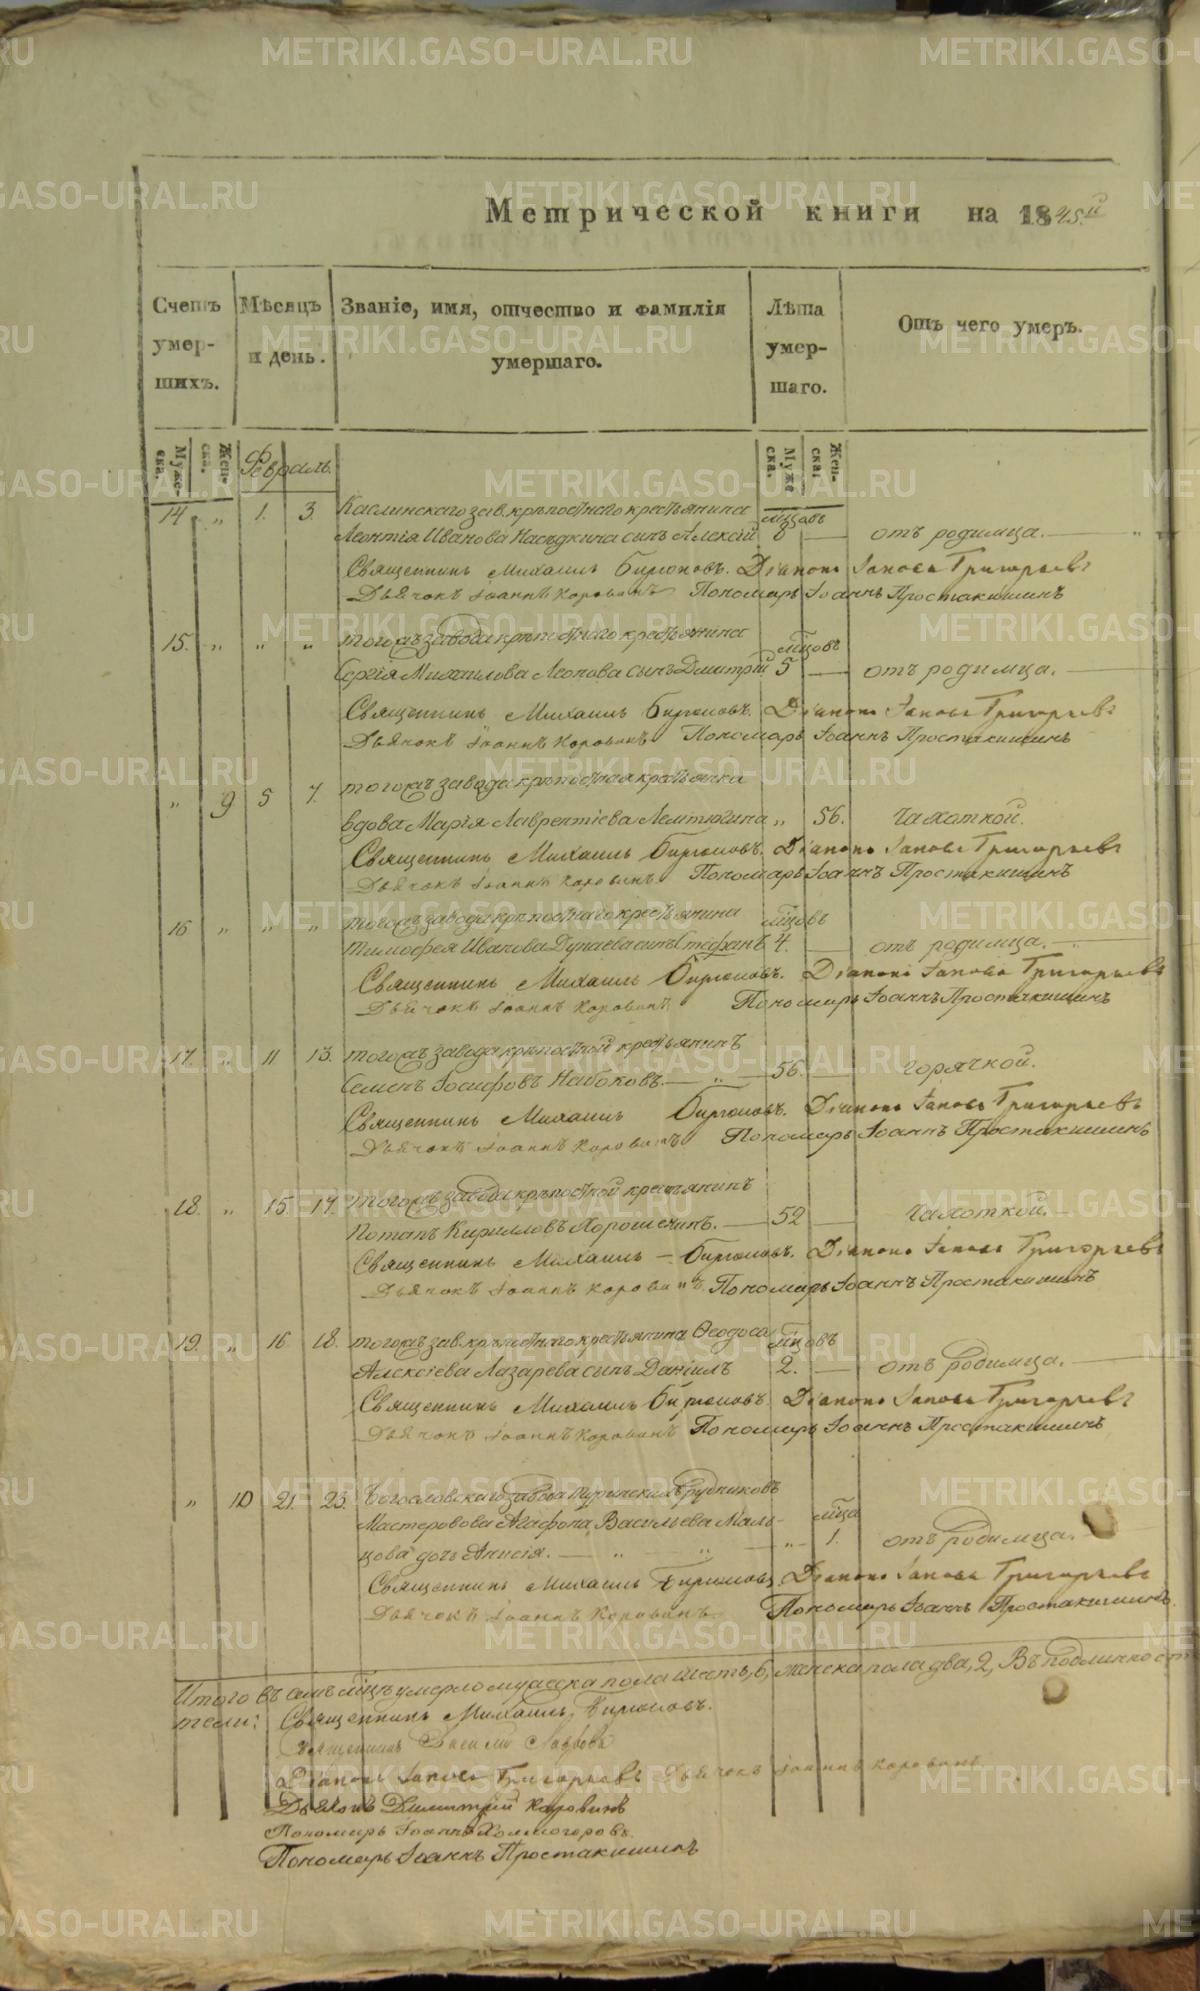 Метрической книги на 1845й
Счетъ умер-шихъ.
Мѣсяцъ и день.
Званіе, имя, отчество и фамилія умершаго.
Лѣта умер-шаго.
Отъ чего умеръ.
Муже-ска. Жен-ска. Февраль. Муже ска. Жен-ска.
14 " 1. 3. Каслинскаго зав. крѣпостнаго крестьянина мѣсяцовъ
Леонтія Иванова Насѣдкина сынъ Алексій 8 — отъ родимца.
Священникъ Михаилъ Бирюковъ. Діаконъ Іаковъ Григорьевъ
Дьячокъ Іоаннъ Коровинъ Пономарь Іоаннъ Простакишинъ
15. " " " тогожъ завода крѣпостнаго крестьянина мѣсяцовъ
Сергія Михаилова Леонова сынъ Дмитрій 5 — отъ родимца.
Священникъ Михаилъ Бирюковъ. Діаконъ Іаковъ Григорьевъ
Дьячокъ Іоаннъ Коровинъ Пономарь Іоаннъ Простакишинъ
" 9 5 7. тогожъ завода крѣпостная крестьянка
вдова Марія Лаврентіева " 56. Чахоткой.
Священникъ Михаилъ Бирюковъ. Діаконъ Іаковъ Григорьевъ
Дьячокъ Іоаннъ Коровинъ Пономарь Іоаннъ Простакишинъ
16 " " " тогожъ завода крѣпостнаго крестьянина мѣсяцовъ
Тимофея Иванова Дунаева сынъ Стефанъ 4. — отъ родимца.
Священникъ Михаилъ Бирюковъ. Діаконъ Іаковъ Григорьевъ
Дьячокъ Іоаннъ Коровинъ Пономарь Іоаннъ Простакишинъ
17. " 11 13. тогожъ завода крѣпостной крестьянинъ
Семенъ Іосифовъ Набоковъ. — " — 56. — горячкой.
Священникъ Михаилъ Бирюковъ. Діаконъ Іаковъ Григорьевъ
Дьячокъ Іоаннъ Коровинъ Пономарь Іоаннъ Простакишинъ
18. " 15. 17. тогожъ завода крѣпостной крестьянинъ
Потапъ Кирилловъ Хорошенинъ. — 52 — Чахоткой.
Священникъ Михаилъ — Бирюковъ. Діаконъ Іаковъ Григорьевъ
Дьячокъ Іоаннъ Коровинъ. Пономарь Іоаннъ Простакишинъ
19. " 16 18. тогожъ зав. крѣпостнаго крестьянина Ѳеодоса мѣсяцовъ
Алексіева Лазарева сынъ Даніилъ 2. — отъ родимца.
Священникъ Михаилъ Бирюковъ. Діаконъ Іаковъ Григорьевъ
Дьячокъ Іоаннъ Коровинъ Пономарь Іоаннъ Простакишинъ
" 10 21. 23. Богословскаго завода Турьинскихъ рудниковъ
Мастероваго Агафона Васильева Маль- мѣсяца
цова дочь Анисія. — " — " — " 1. отъ родимца.
Священникъ Михаилъ Бирюковъ. Діаконъ Іаковъ Григорьевъ
Дьячокъ Іоаннъ Коровинъ. Пономарь Іоаннъ Простакишинъ.
Итого въ семъ мѣсяцѣ умерло мужеска пола шесть, 6, женска пола два, 2, Въ подлинности
тели: Священникъ Михаилъ Бирюковъ.
Священникъ Василій
Діаконъ Іаковъ Григорьевъ Дьячокъ Іоаннъ Коровинъ
Дьяконъ Димитрій Коровинъ
Пономарь Іоаннъ Холмогоровъ.
Пономарь Іоаннъ Простакишинъ
METRIKI.GASO-URAL.RU